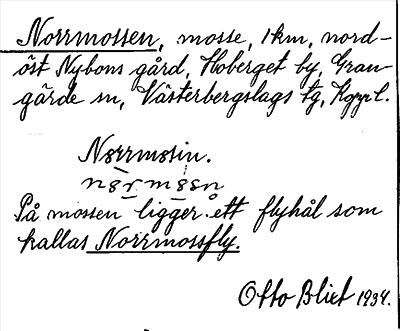 Norrmossen, mosse, 1 km, nord-
öst Nybons gård, Hoberget by, Gran-
gärde sn, Västerbergslags tg, Kpprl.
Nørrmøsin.
nørmøsn
På mossen ligger ett flyhål som
kallas Norrmossfly.
Otto Blixt 1934.